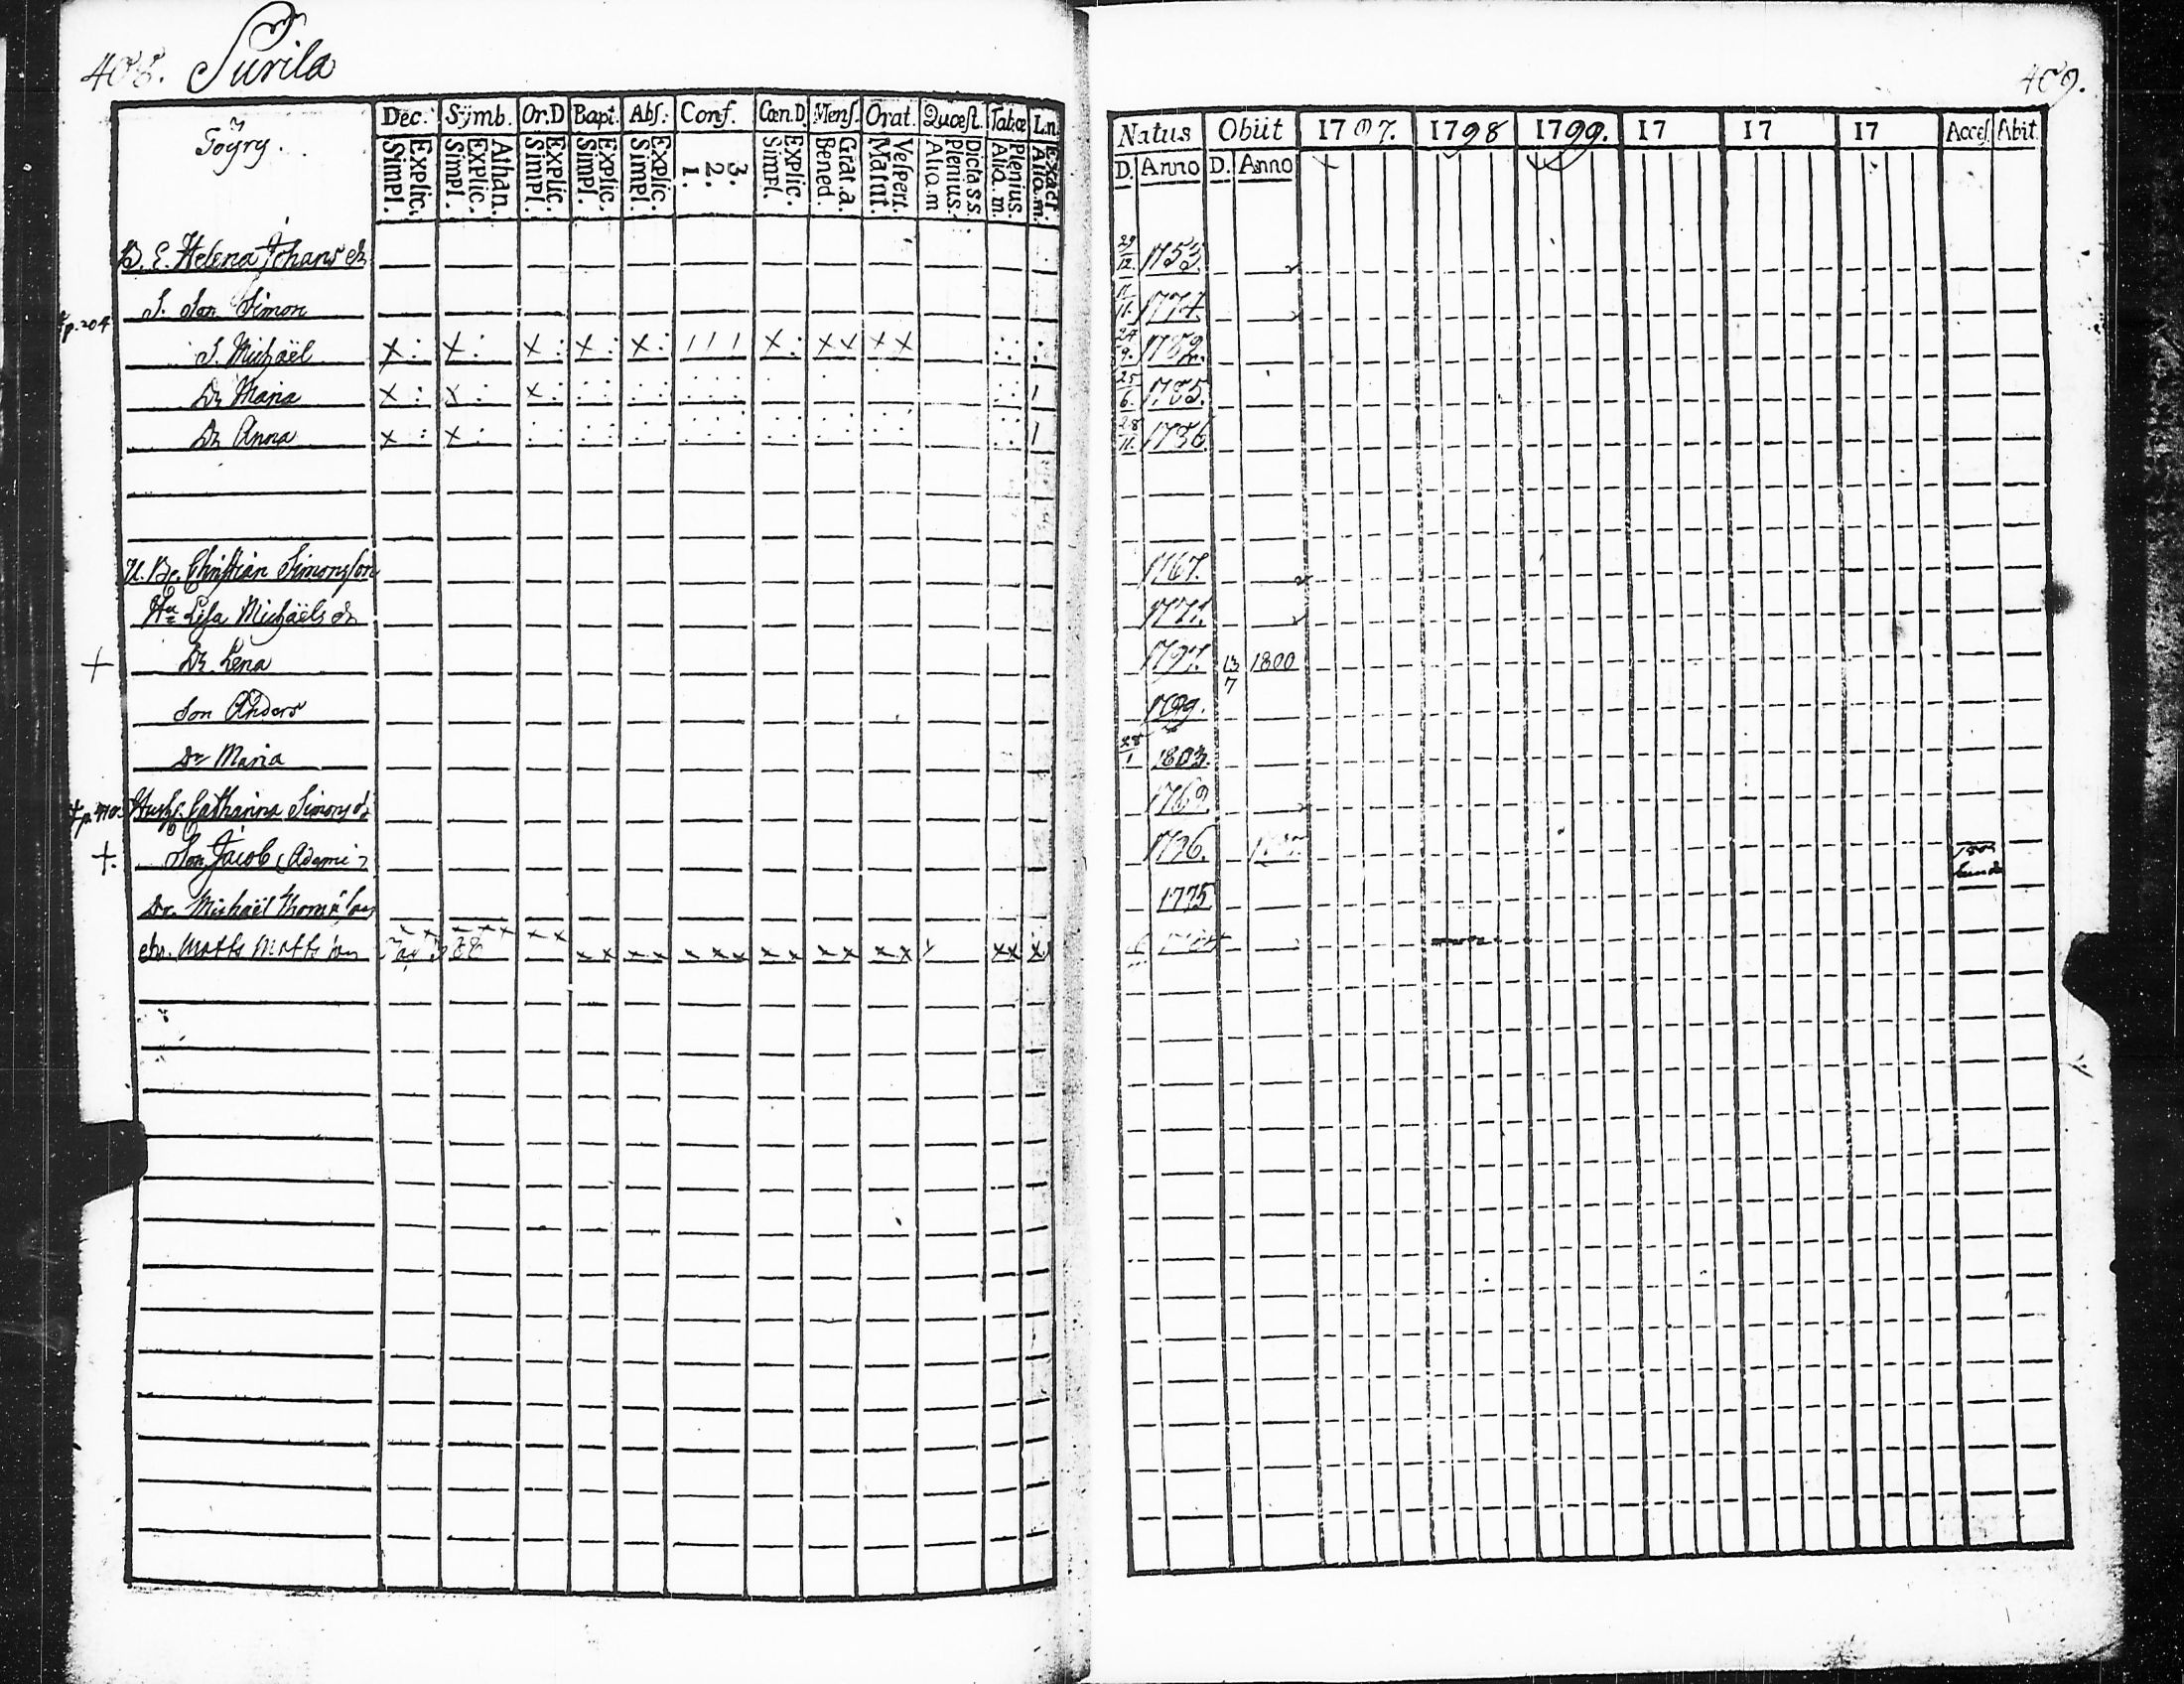 408. Surila
Töyry.
Dec. Sÿmb. Or.D Bapt. Abs. Conf. Cœn.D. Mens. Orat. Quœst. Tabœ L.n.
Simpl. Explic. Simpl. Explic. Athan. Simpl. Explic. Simpl. Explic. Simpl. Explic. 1. 2. 3. Simpl. Explic. Bened. Grat.a. Matut. Vespert. Alio.m Plenius. Dicta S.S. Alia.m. Plenius. Alia.m. Exact.
B. E. Helena Johans dr
S. Son Simon
p. 204
S. Michaël x : x : x : x : x : / / / x : x x x x
Dr Maria x : x : x :
Dr Anna x : x :
U. Br. Christian Simonsson
Hu Lisa Michaëls dr
+ Dr. Lena
Son Anders
Dr Maria
+ p. 410. Hush. Catharina Simons dr
+. Son Jacob (Adami)
Dr. Michaël Thomasson
Matts Mattsson x x x x x x x x x x x x x x x x x x x
409.
Natus Obiit 1797. 1798 1799. 17 17 17 Acces. Abit.
D. Anno D. Anno
29/12 1753
11/11. 1774.
24/9. 1782
25/6. 1785.
28/11. 1786.
1767.
1771.
1797. 13/7 1800
1799.
28/1 1803.
1769.
1796.
1775